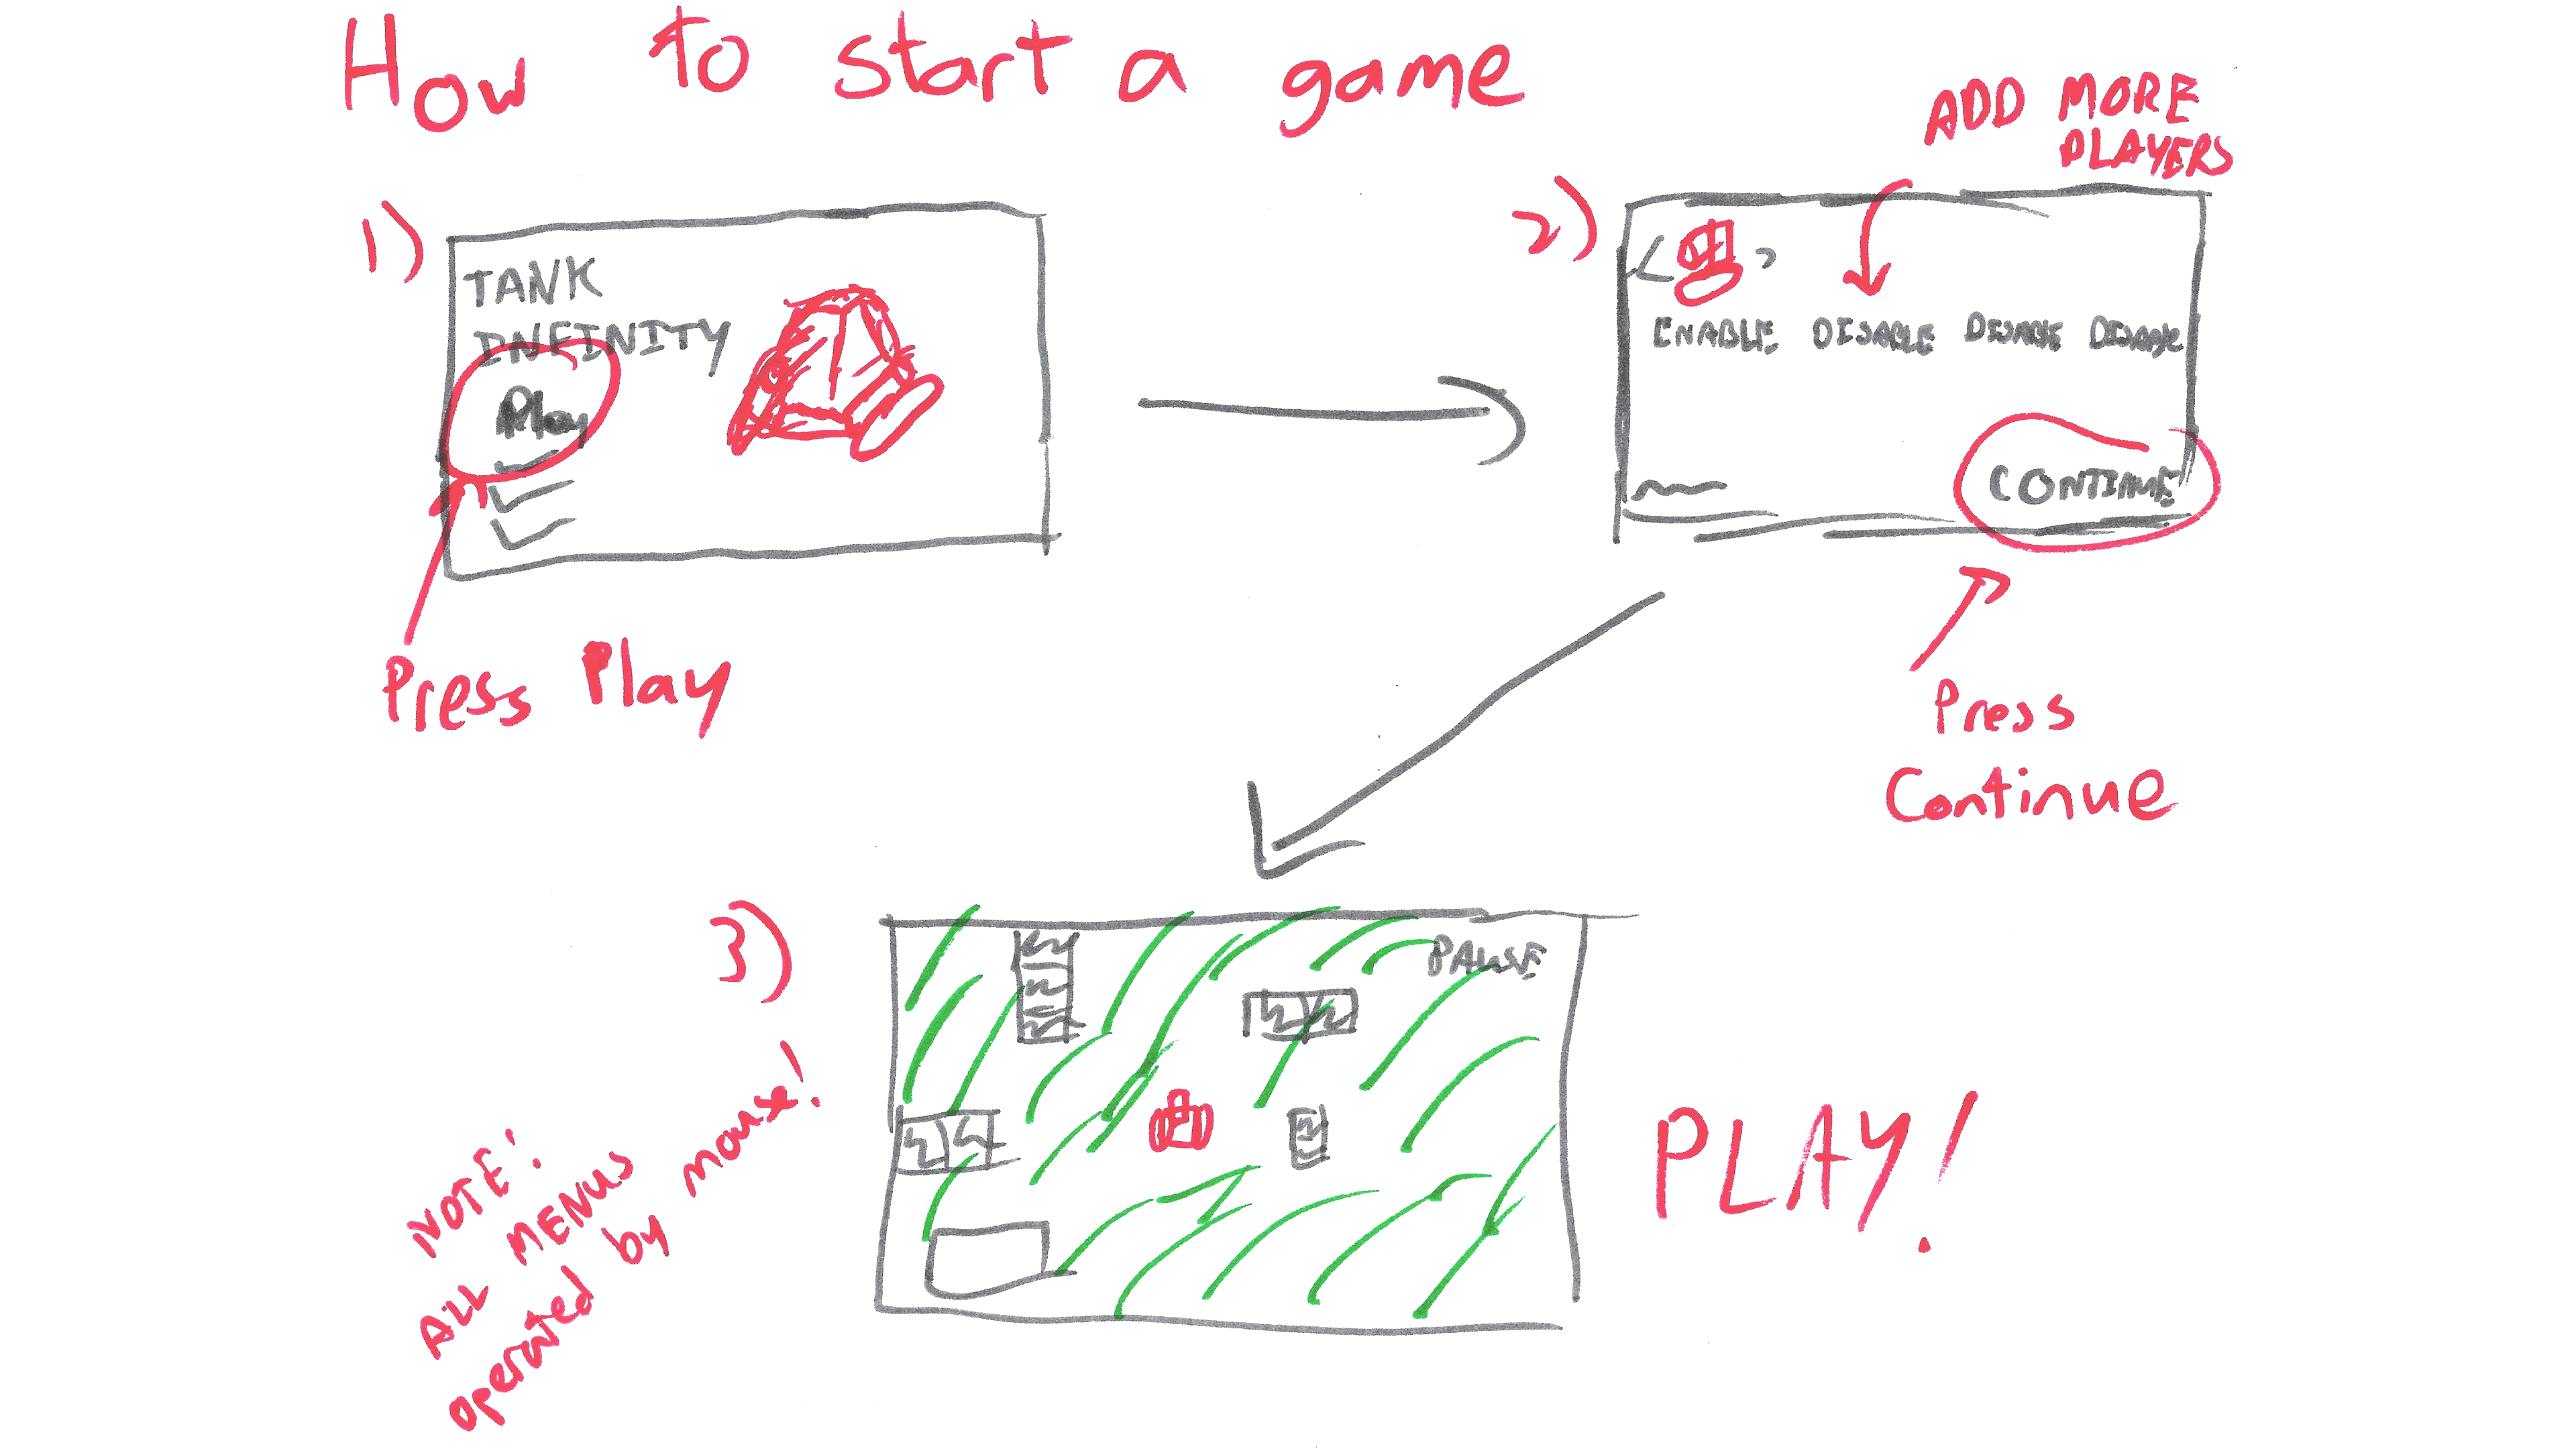 How to start a game
1)
TANK
INFINITY
Play
Press Play
2)
ADD MORE
PLAYERS
< >
ENABLE DISABLE DISABLE DISABLE
CONTINUE
Press
Continue
3)
PAUSE
PLAY!
NOTE!
ALL MENUS
operated by mouse!